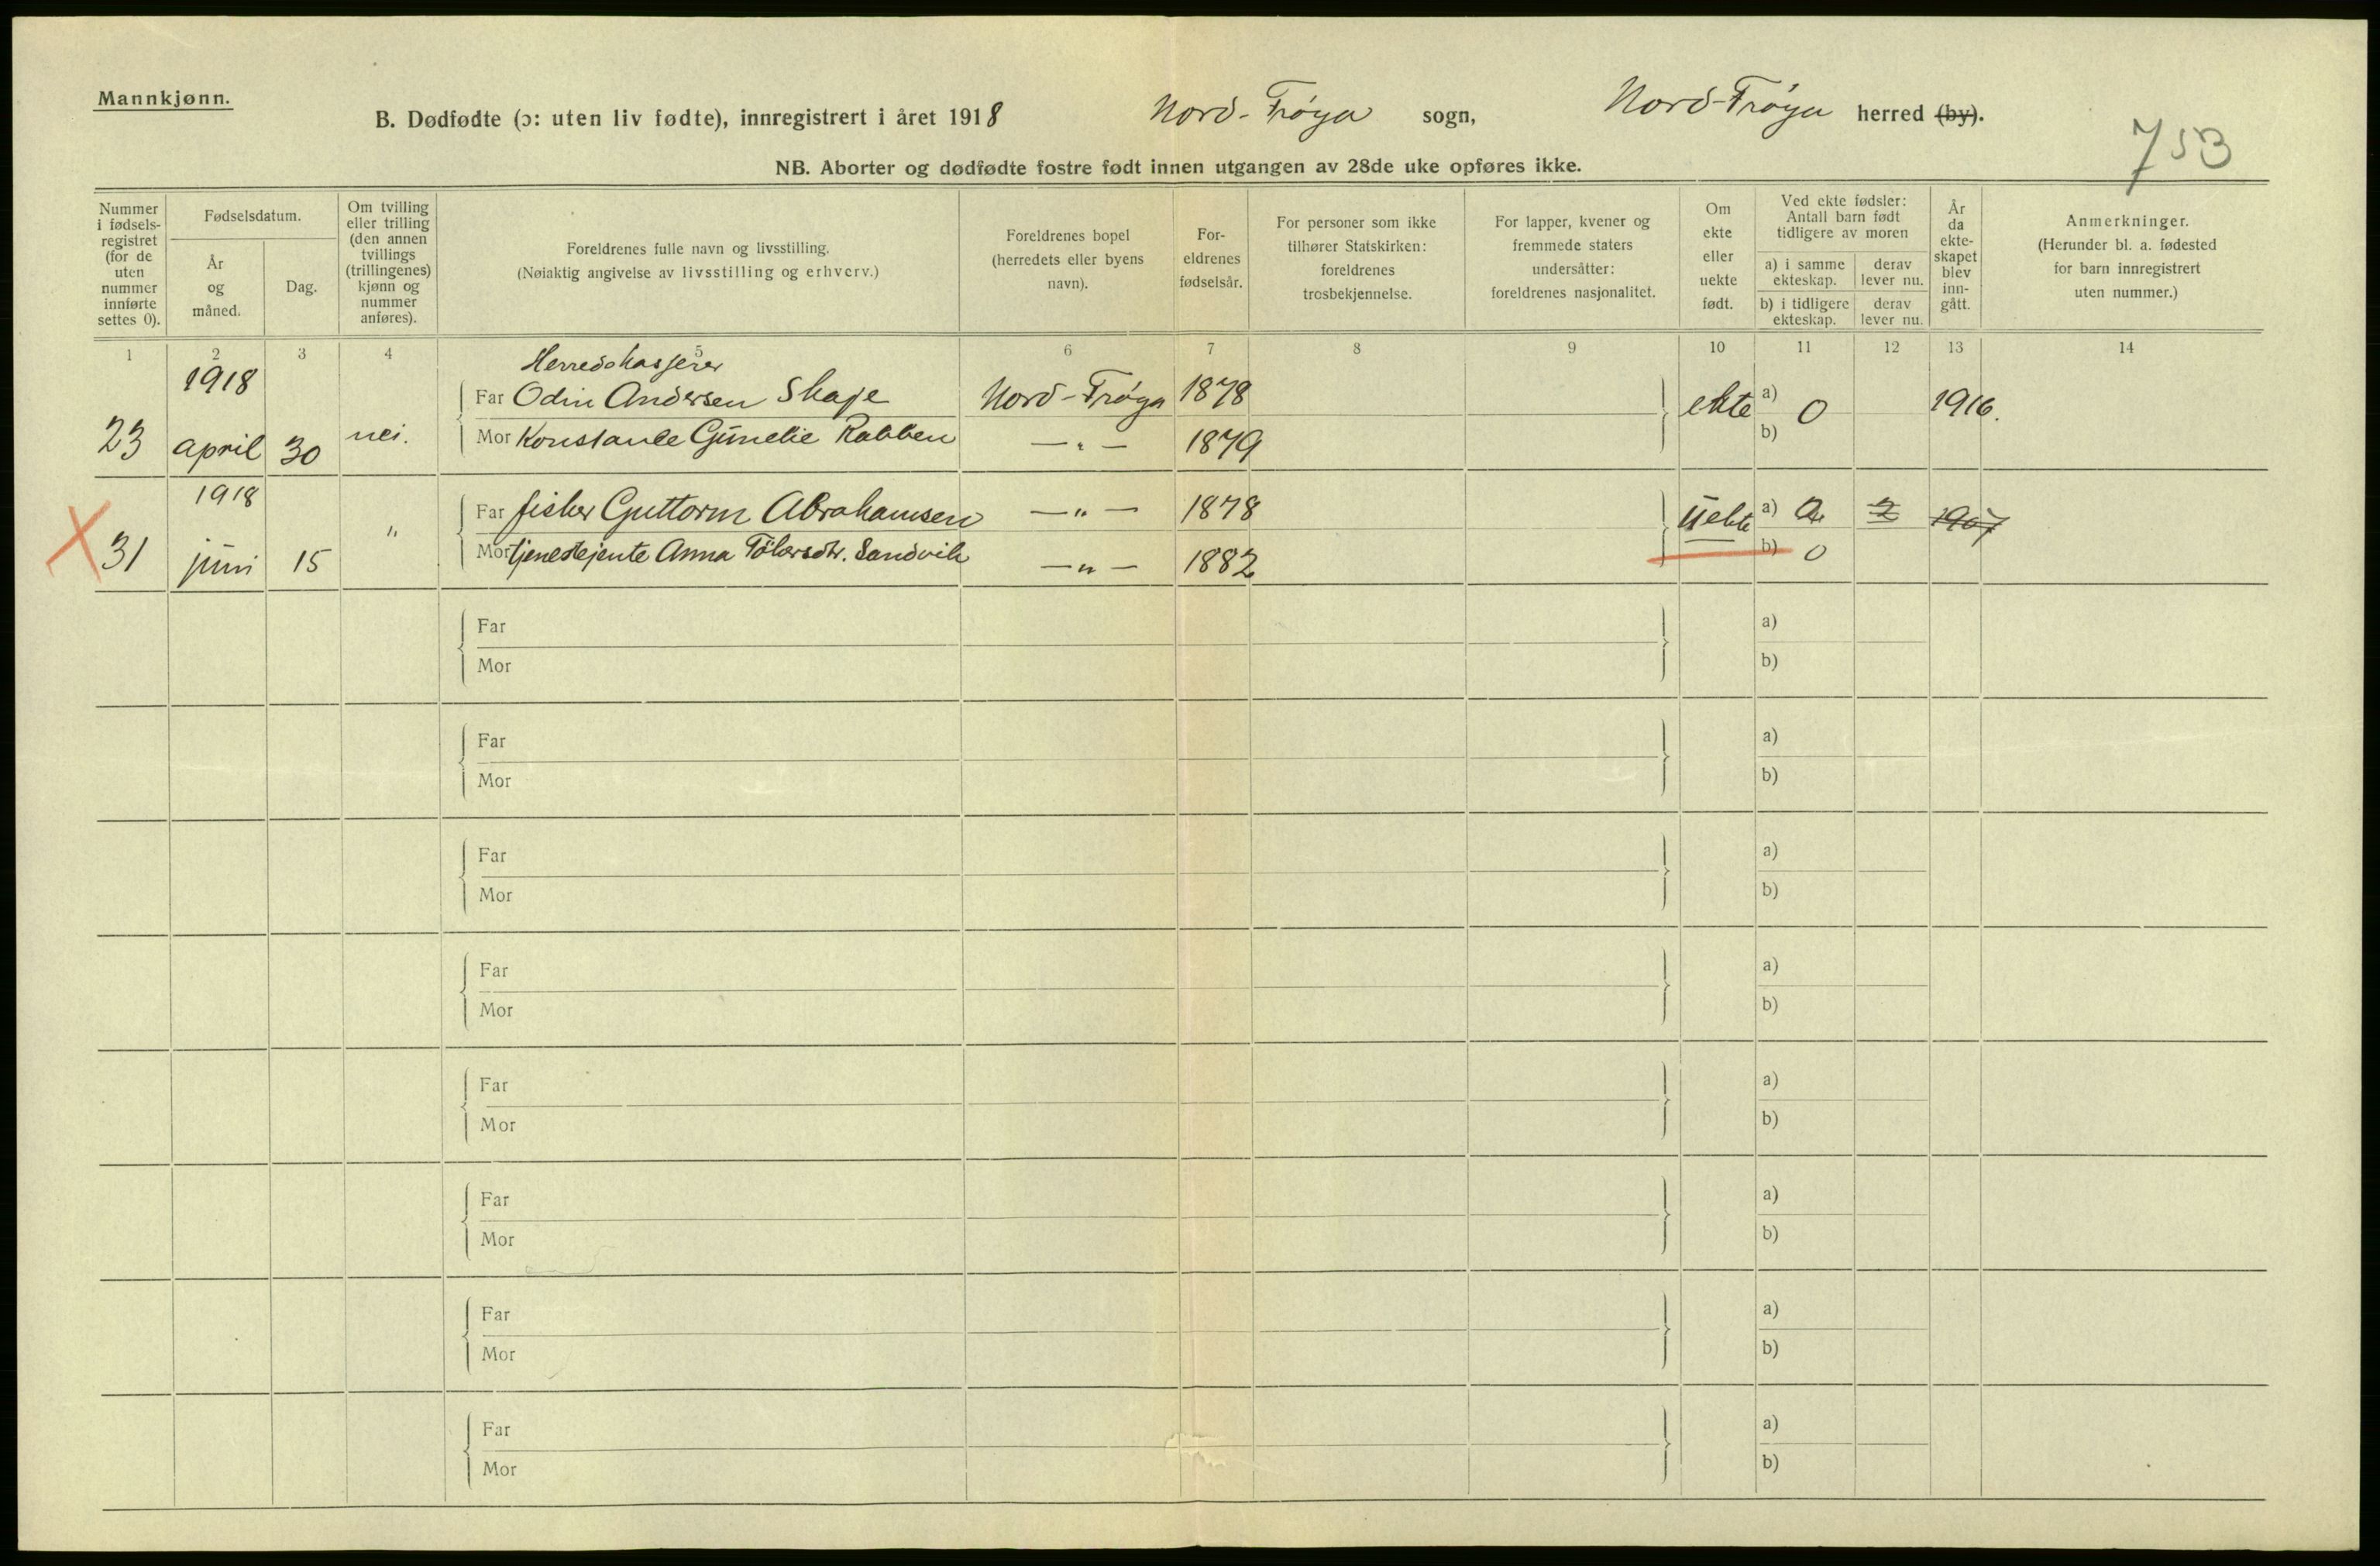 Mannkjønn.
B. Dødfødte (ɔ: uten liv fødte), innregistrert i året 1918 Nord-Frøya sogn, Nord-Frøya herred (by).
753
NB. Aborter og dødfødte fostre født innen utgangen av 28de uke opføres ikke.
Nummer
i fødsels-
registret
(for de
uten
nummer
innførte
settes 0).
Fødselsdatum.
År
og
måned.
Dag.
Om tvilling
eller trilling
(den annen
tvillings
(trillingenes)
kjønn og
nummer
anføres).
Foreldrenes fulle navn og livsstilling.
(Nøiaktig angivelse av livsstilling og erhverv.)
Foreldrenes bopel
(herredets eller byens
navn).
For-
eldrenes
fødselsår.
For personer som ikke
tilhører Statskirken:
foreldrenes
trosbekjennelse.
For lapper, kvener og
fremmede staters
undersåtter:
foreldrenes nasjonalitet.
Om
ekte
eller
uekte
født.
Ved ekte fødsler:
Antall barn født
tidligere av moren
a) i samme
ekteskap.
derav
lever nu.
b) i tidligere
ekteskap.
derav
lever nu.
År
da
ekte-
skapet
blev
inn-
gått.
Anmerkninger.
(Herunder bl. a. fødested
for barn innregistrert
uten nummer.)
1 2 3 4 5 6 7 8 9 10 11 12 13 14
1918 Herredskasserer
Far Odin Andersen Skaje Nord-Frøya 1878 ekte a) 0 1916.
23 april 30 nei. Mor Konstanse Gunelie Rabben —„— 1879 b)
1918
Far fisker Guttorm Abrahamsen —„— 1878 uekte a) 2 2 1907
31 juni 15 „ Mor tjenestejente Anna Tølersdtr. Sandvik —„— 1882 b) 0
Far a)
Mor b)
Far a)
Mor b)
Far a)
Mor b)
Far a)
Mor b)
Far a)
Mor b)
Far a)
Mor b)
Far a)
Mor b)
Far a)
Mor b)